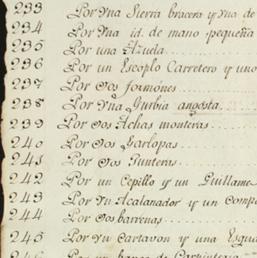 233 Por Una Sierra bracera y Una de
234 Por Una id. de mano pequeña
235 Por una Azuela
236 Por un Escoplo Carretero y uno
237 Por dos formones
238 Por Una Gurbia angosta
239 Por dos Achas monteras
240 Por dos Garlopas
241 Por dos Junteras
242 Por un Cepillo y un Guillame
243 Por Un Acalanador y un comp
244 Por dos barrenas
245 Por Un Cartavon y una Esqua
246 Por un banco de Carpinteria